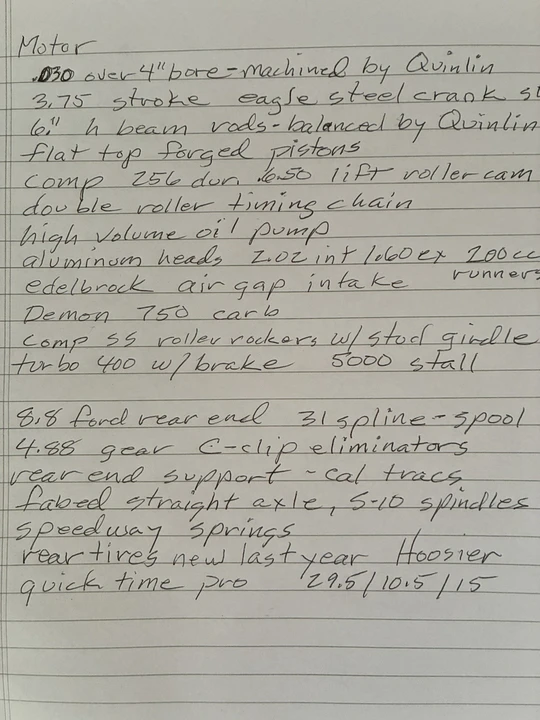 Motor
.030 over 4" bore - machined by Quinlin
3.75 stroke eagle steel crank
6." h beam rods - balanced by Quinlin
flat top forged pistons
comp 256 dur. .650 lift roller cam
double roller timing chain
high volume oil pump
aluminum heads 2.02 int 1.60 ex 200cc
runners
edelbrock air gap intake
Demon 750 carb
comp SS roller rockers w/ stud girdle
turbo 400 w/ brake 5000 stall
8.8 ford rear end 31 spline - spool
4.88 gear C-clip eliminators
rear end support - cal tracs
fabed straight axle, S-10 spindles
speedway springs
rear tires new last year Hoosier
quick time pro 29.5/10.5/15